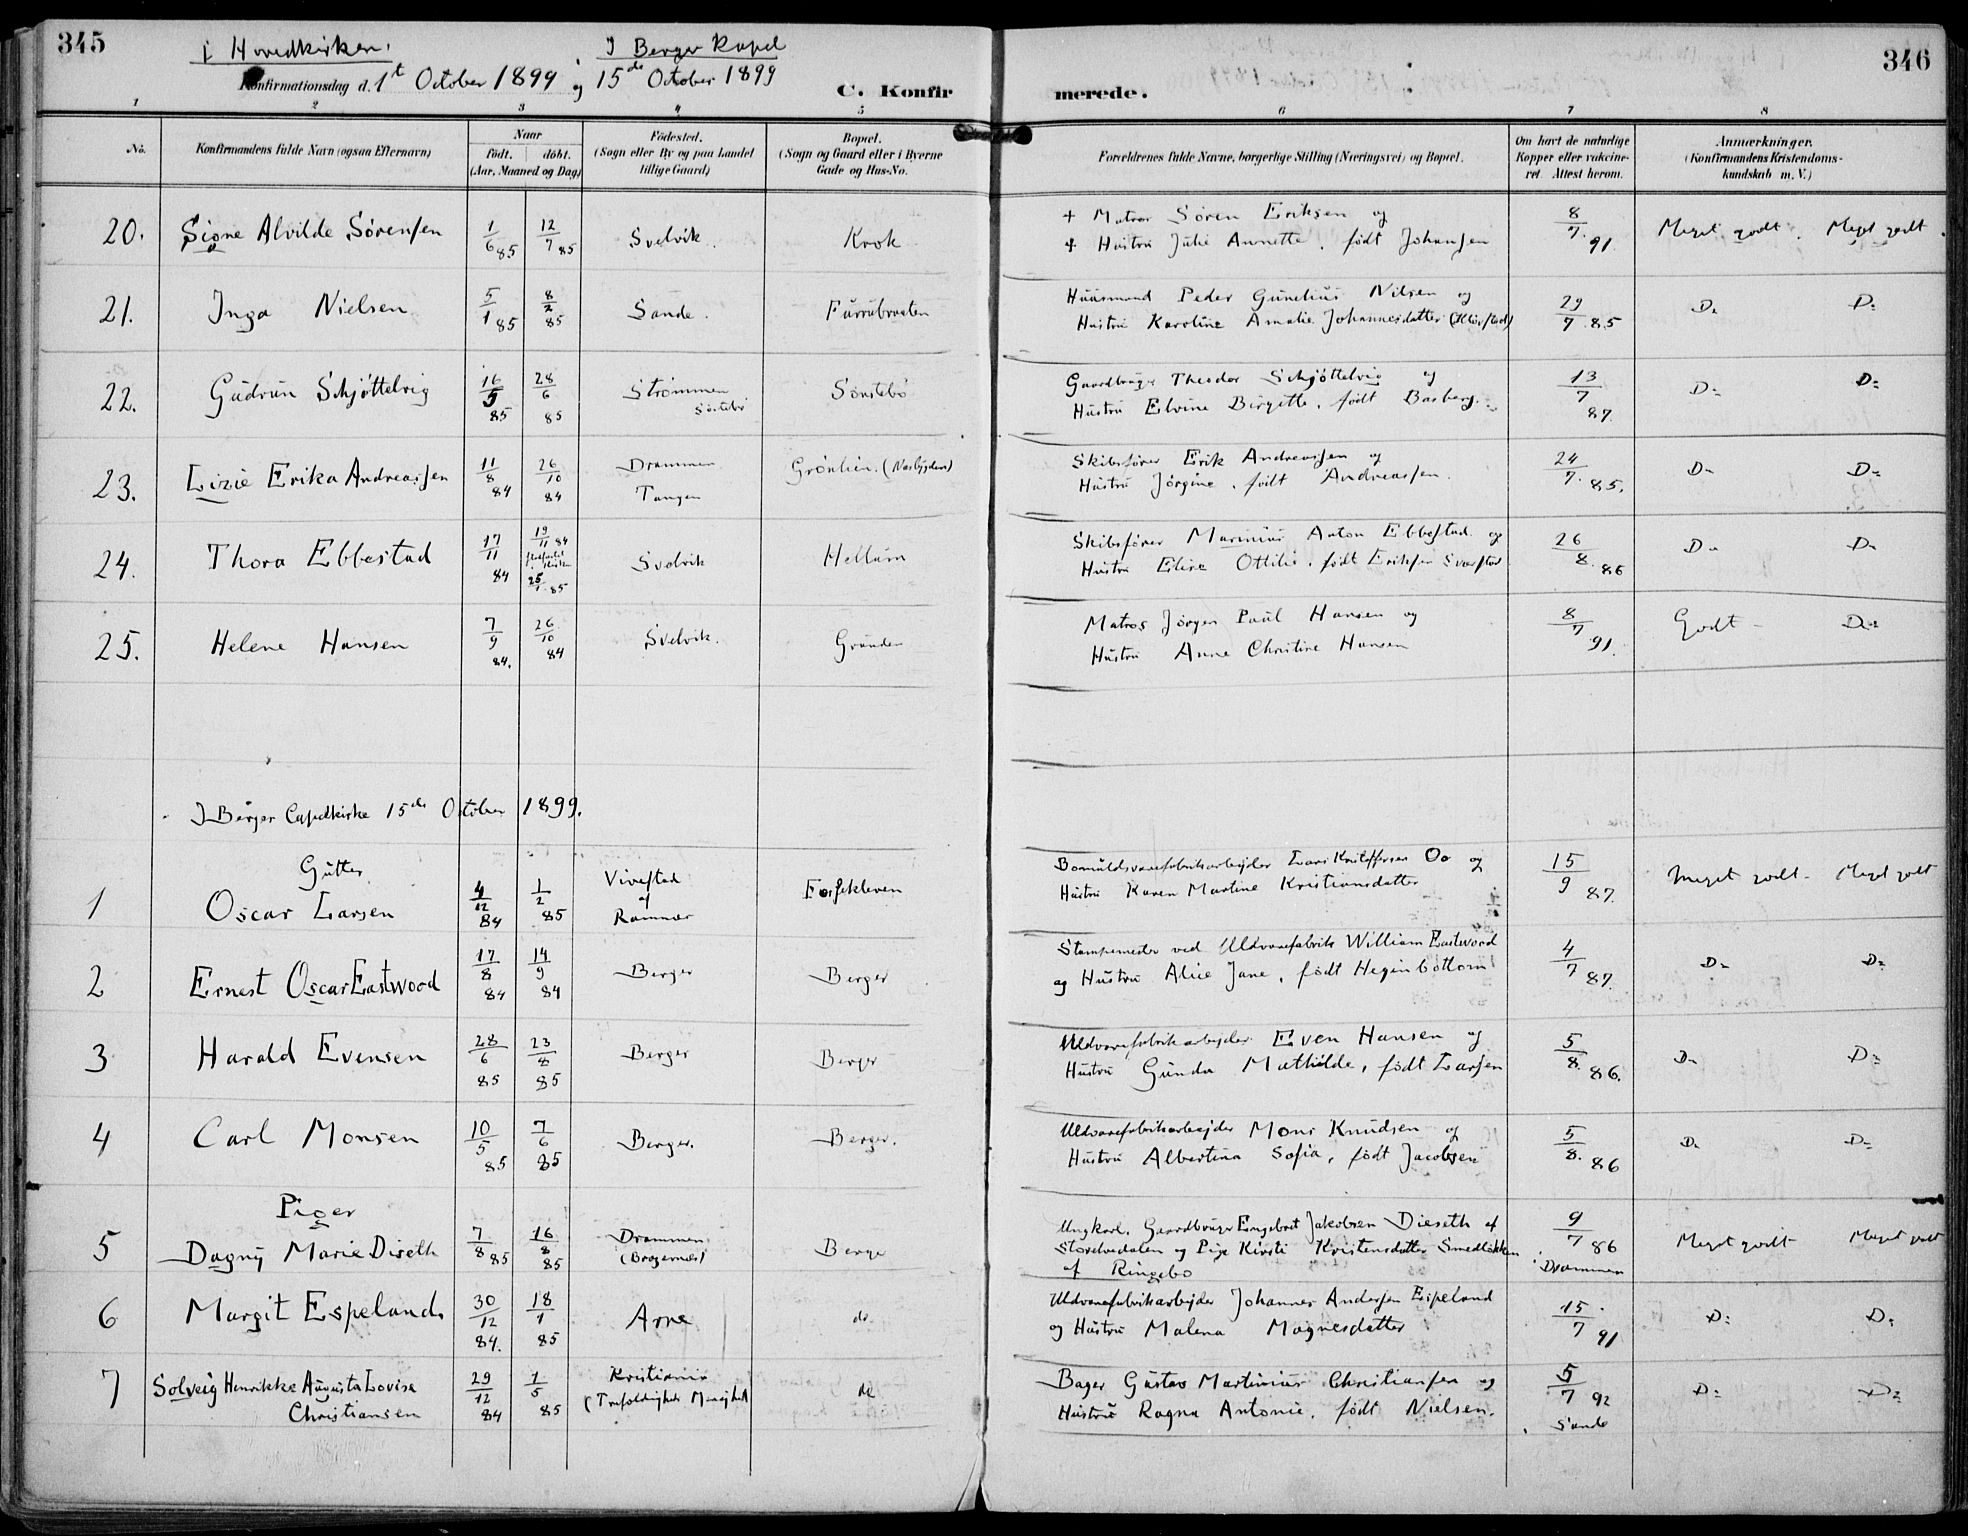 345
i Hovedkirken.
I Berger Kapel
Konfirmationsdag d. 1t October 1899 og 15de October 1899
C. Konfir
1 2 3 4 5
No.
Konfirmandens fulde Navn (ogsaa Efternavn)
Naar
født. døbt.
(Aar, Maaned og Dag)
Fødested.
(Sogn eller By og paa Landet
tillige Gaard)
Bopæl.
(Sogn og Gaard eller i Byerne
Gade og Hus-No.
20. Signe Alvilde Sørensen 1/6 85 12/7 85 Svelvik. Krok
21. Inga Nielsen 5/1 85 8/2 85 Sande. Furrubraaten
22. Gudrun Schjøttelvig 16/5 85 28/6 85 Strømmen Sønstebø
23. Lizie Erika Andreassen 11/8 84 26/10 84 Drammen Tangen Grønlien. (Nesbygden)
24. Thora Ebbestad 17/11 84 19/11 84 25/1 85 Svelvik Hellum
25. Helene Hansen 7/9 84. 26/10 84 Svelvik. Grunden
I Berger Capelkirke 15de October 1899.
Gutter
1 Oscar Larsen 4/12 84 1/2 85 Vivestad af Ramnæs
2 Ernest Oscar Eastwood 17/8 84 14/9 84 Berger Berger
3 Harald Evensen 28/6 85 23/8 85 Berger Berger
4 Carl Monsen 10/5 85 7/6 85 Berger. Berger.
Piger
5 Dagny Marie Diseth 7/8 85 16/8 85 Drammen (Bragernes) Berger
6 Margit Espeland 30/12 84. 18/1 85 Arne do
7 Solveig Henrikke Augusta Lovise
Christiansen 29/12 84 1/5 85 Kristiania (Trefoldigheds Menighed) do
346
merede.
6 7 8
Forældrenes fulde Navne, borgerlige Stilling (Næringsvei) og Bopæl.
Om havt de naturlige
Kopper eller vaccine-
ret. Attest herom.
Anmærkninger.
(Konfirmandens Kristendoms-
kundskab m. V.)
+ Matros Søren Eriksen og
+ Hustru Julie Annette, født Johansen 8/7 91 Meget godt. Meget godt.
Huusmand Peder Gunelius Nilsen og
Hustru Karoline Amalie Johannesdatter 29/7 85 Do Do
Gaardbruger Theodor Schjøttelvig og
Hustru Elvine Birgitte, født Basberg. 13/7 87. Do Do
Skibsfører Erik Andreassen og
Hustru Jørgine, født Andreassen. 24/7 85. Do Do
Skibsfører Marinius Anton Ebbestad og
Hustru Elise Ottilie, født Eriksen 26/8 86 Do Do
Matros Jørgen Paul Hansen og
Hustru Anne Christine Hansen 8/7 91. Godt Do
Bomuldsvarefabriksarbejder Lars Kristoffersen Oo og
Hustru Karen Martine Kristiansdatter 15/9 87. Meget godt Meget godt
Stampemester ved Uldvarefabrik William Eastwood
og Hustru Alice Jane, født Heginbottom 4/7 87. Do Do
Uldvarefabrikarbejder Even Hansen og
Hustru Gunda Mathilde, født Larsen 5/8 86. Do Do
Uldvarefabriksarbejder Mons Knudsen og
Hustru Albertina Sofia, født Jacobsen 5/8 86 Do Do
Ungkarl, Gaardbruger Engebret Jakobsen Dieseth af
Storelvedalen og Pige Kirsti Kristensdatter Smedløkken
af Ringebo 9/7 86 Drammen Meget godt Meget godt
Uldvarefabriksarbejder Johannes Andersen Espeland
og Hustru Malena Magnesdatter 15/7 91 Do Do
Bager Gustav Martinius Christiansen og
Hustru Ragna Antonie, født Nielsen. 5/7 92 Sande Do Do